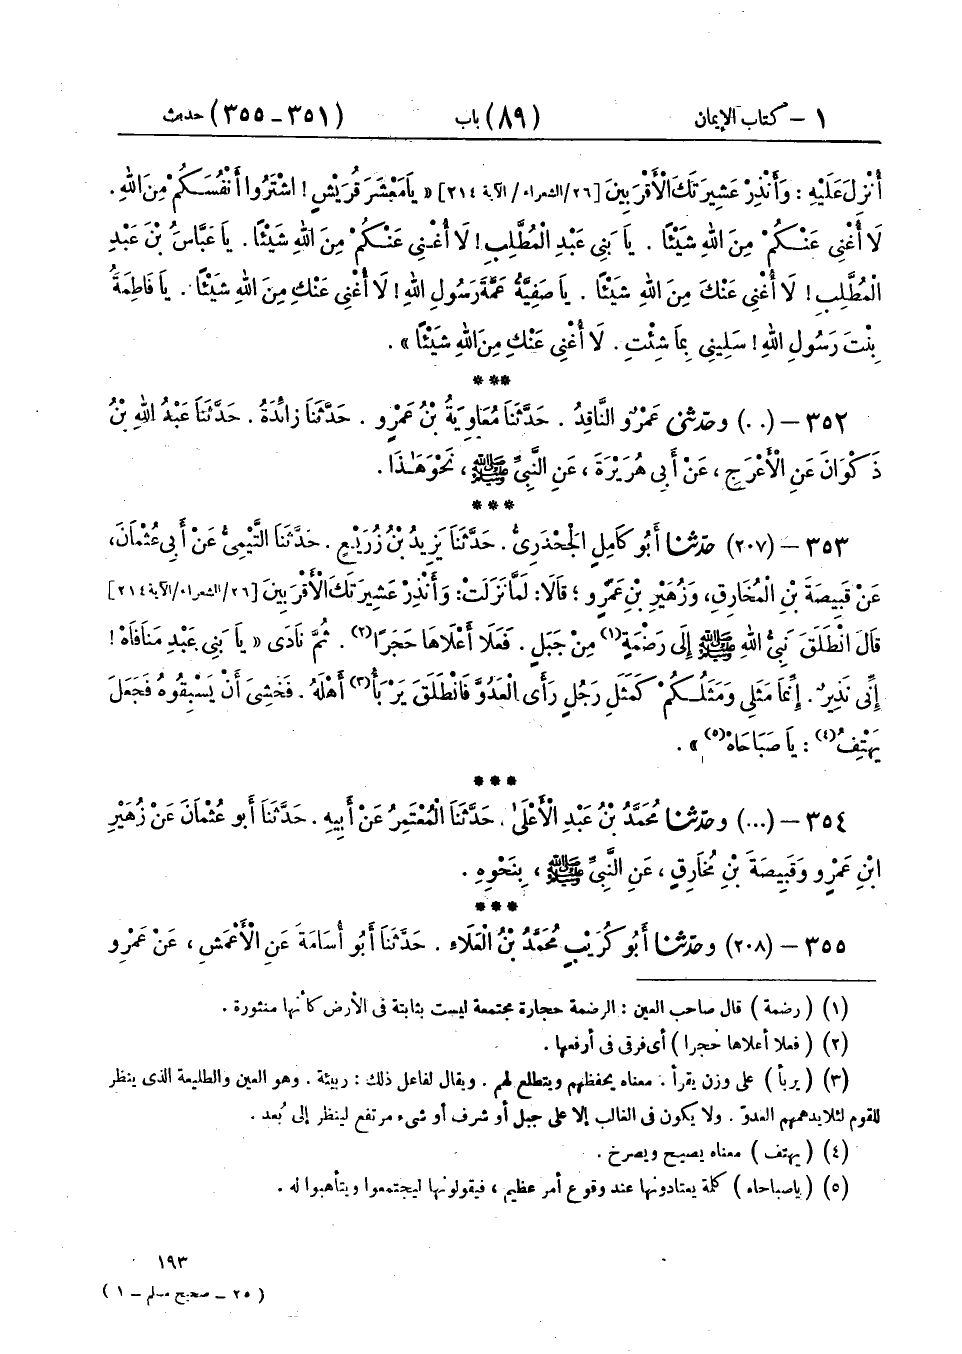 ١ – كتاب الإيمان (٨٩) باب (٣٥١ – ٣٥٥) حديث
أُنْزِلَ عَلَيْهِ : وَأَنْذِرْ عَشِيرَتَكَ الْأَقْرَبِينَ [٢٦/الشعراء/ الآية ٢١٤] « يَا مَعْشَرَ قُرَيْشٍ ! اشْتَرُوا أَنْفُسَكُمْ مِنَ اللهِ .
لَا أُغْنِي عَنْكُمْ مِنَ اللهِ شَيْئًا . يَا بَنِي عَبْدِ الْمُطَّلِبِ ! لَا أُغْنِي عَنْكُمْ مِنَ اللهِ شَيْئًا . يَا عَبَّاسُ بْنَ عَبْدِ
الْمُطَّلِبِ ! لَا أُغْنِي عَنْكَ مِنَ اللهِ شَيْئًا . يَا صَفِيَّةُ عَمَّةَ رَسُولِ اللهِ ! لَا أُغْنِي عَنْكِ مِنَ اللهِ شَيْئًا . يَا فَاطِمَةُ
بِنْتَ رَسُولِ اللهِ ! سَلِينِي بِمَا شِئْتِ . لَا أُغْنِي عَنْكِ مِنَ اللهِ شَيْئًا » .
***
٣٥٢ – (..) وحدثني عَمْرٌو النَّاقِدُ . حَدَّثَنَا مُعَاوِيَةُ بْنُ عَمْرٍو . حَدَّثَنَا زَائِدَةُ . حَدَّثَنَا عَبْدُ اللهِ بْنُ
ذَكْوَانَ عَنِ الْأَعْرَجِ ، عَنْ أَبِي هُرَيْرَةَ ، عَنِ النَّبِيِّ ﷺ ، نَحْوَ هَٰذَا .
***
٣٥٣ – (٢٠٧) حدثنا أَبُو كَامِلٍ الْجَحْدَرِيُّ . حَدَّثَنَا يَزِيدُ بْنُ زُرَيْعٍ . حَدَّثَنَا التَّيْمِيُّ عَنْ أَبِي عُثْمَانَ ،
عَنْ قَبِيصَةَ بْنِ الْمُخَارِقِ ، وَزُهَيْرِ بْنِ عَمْرٍو ؛ قَالَا : لَمَّا نَزَلَتْ : وَأَنْذِرْ عَشِيرَتَكَ الْأَقْرَبِينَ [٢٦/الشعراء/الآية ٢١٤]
قَالَ انْطَلَقَ نَبِيُّ اللهِ ﷺ إِلَى رَضْمَةٍ(١) مِنْ جَبَلٍ . فَعَلَا أَعْلَاهَا حَجَرًا(٢) . ثُمَّ نَادَى « يَا بَنِي عَبْدِ مَنَافَاهْ !
إِنِّي نَذِيرٌ . إِنَّمَا مَثَلِي وَمَثَلُكُمْ كَمَثَلِ رَجُلٍ رَأَى الْعَدُوَّ فَانْطَلَقَ يَرْبَأُ(٣) أَهْلَهُ . فَخَشِيَ أَنْ يَسْبِقُوهُ فَجَعَلَ
يَهْتِفُ(٤) : يَا صَبَاحَاهْ(٥) » .
***
٣٥٤ – (...) وحدثنا مُحَمَّدُ بْنُ عَبْدِ الْأَعْلَىٰ . حَدَّثَنَا الْمُعْتَمِرُ عَنْ أَبِيهِ . حَدَّثَنَا أَبُو عُثْمَانَ عَنْ زُهَيْرِ
ابْنِ عَمْرٍو وَقَبِيصَةَ بْنِ مُخَارِقٍ ، عَنِ النَّبِيِّ ﷺ ، بِنَحْوِهِ .
***
٣٥٥ – (٢٠٨) وحدثنا أَبُو كُرَيْبٍ مُحَمَّدُ بْنُ الْعَلَاءِ . حَدَّثَنَا أَبُو أُسَامَةَ عَنِ الْأَعْمَشِ ، عَنْ عَمْرِو
(١) ( رضمة ) قال صاحب العين : الرضمة حجارة مجتمعة ليست بثابتة فى الأرض كأنها منثورة .
(٢) ( فعلا أعلاها حجرا ) أى فرق فى أرفعها .
(٣) ( يربأ ) على وزن يقرأ . معناه يحفظهم ويتطلع لهم . ويقال لفاعل ذلك : ربيئة . وهو العين والطليعة الذى ينظر
للقوم لئلا يدهمهم العدوّ . ولا يكون فى الغالب إلا على جبل أو شرف أو شىء مرتفع لينظر إلى بُعد .
(٤) ( يهتف ) معناه يصيح ويصرخ .
(٥) ( يا صباحاه ) كلمة يعتادونها عند وقوع أمر عظيم ، فيقولونها ليجتمعوا ويتأهبوا له .
١٩٣
( ٢٥ – صحيح مسلم – ١ )